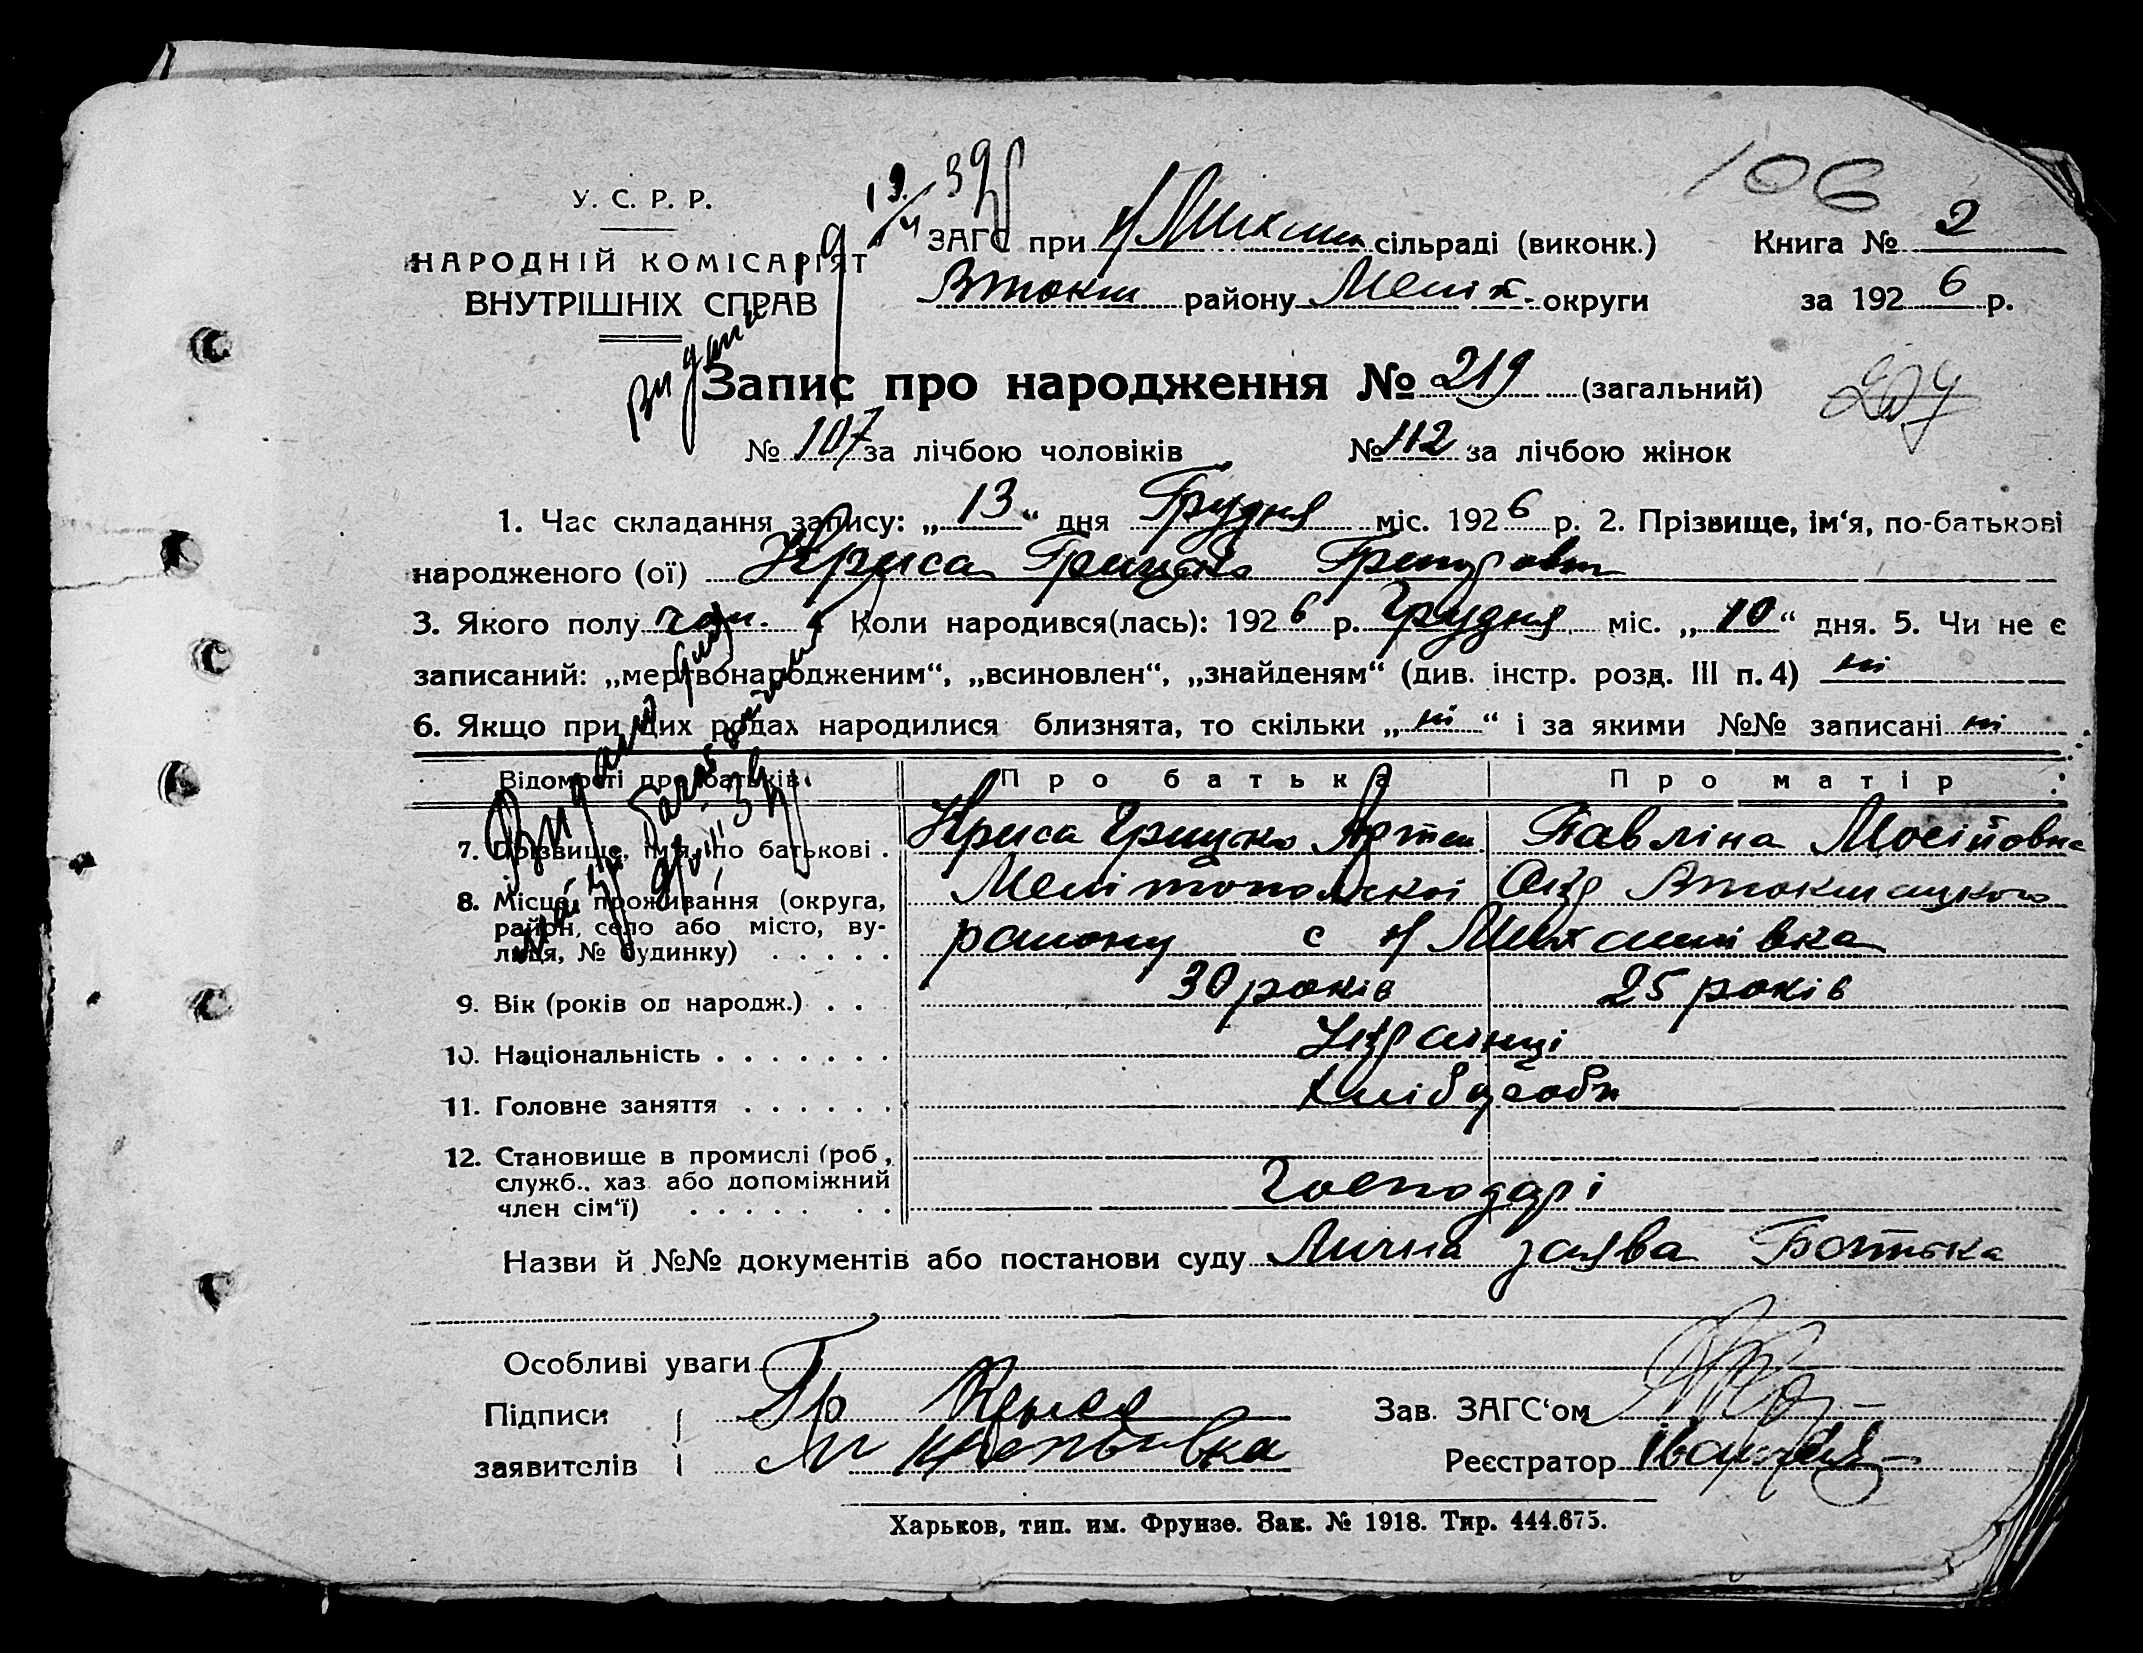 106
13/4 39
У. С. Р. Р.
НАРОДНІЙ КОМІСАРІЯТ
ВНУТРІШНІХ СПРАВ
ЗАГС при Н Михаил сільраді (виконк.) Книга № 2
Втокм району Меліт. округи за 1926 р.
Запис про народження № 219 (загальний)
№ 107 за лічбою чоловіків № 112 за лічбою жінок
1. Час складання запису: „13“ дня Грудня міс. 1926 р. 2. Прізвище, ім‘я, по-батькові
народженого (ої) Криса Грицько Грицьков
3. Якого полу чол. 4 Коли народився(лась): 1926 р. Грудня міс. „10“ дня. 5. Чи не є
записаний: „мертвонародженим“, „всиновлен“, „знайденям“ (див. інстр. розд. III п. 4) ні
6. Якщо при цих родах народилися близнята, то скільки „ні“ і за якими №№ записані ні
Відомості про батьків Про батька Про матір
7. Прізвище, ім‘я, по батькові . Криса Грицько Артем Павліна Мосійовна
8. Місце проживання (округа, район, село або місто, вулиця, № будинку) . . . . . Мелітопольскоі Окр Втокмацкого
району с Н Михаилівка
9. Вік (років од народж.) . . 30 років 25 років
10. Національність . . . . . . . Українці
11. Головне заняття . . . . . . Хлібороби
12. Становище в промислі (роб, служб., хаз. або допоміжний член сім‘ї) . . . . . . . Господарі
Назви й №№ документів або постанови суду Лична заява Батька
Особливі уваги
Підписи Гр Крыса Зав. ЗАГС‘ом
заявителів Реєстратор
Харьков, тип. им. Фрунзе. Зак. № 1918. Тир. 444.675.